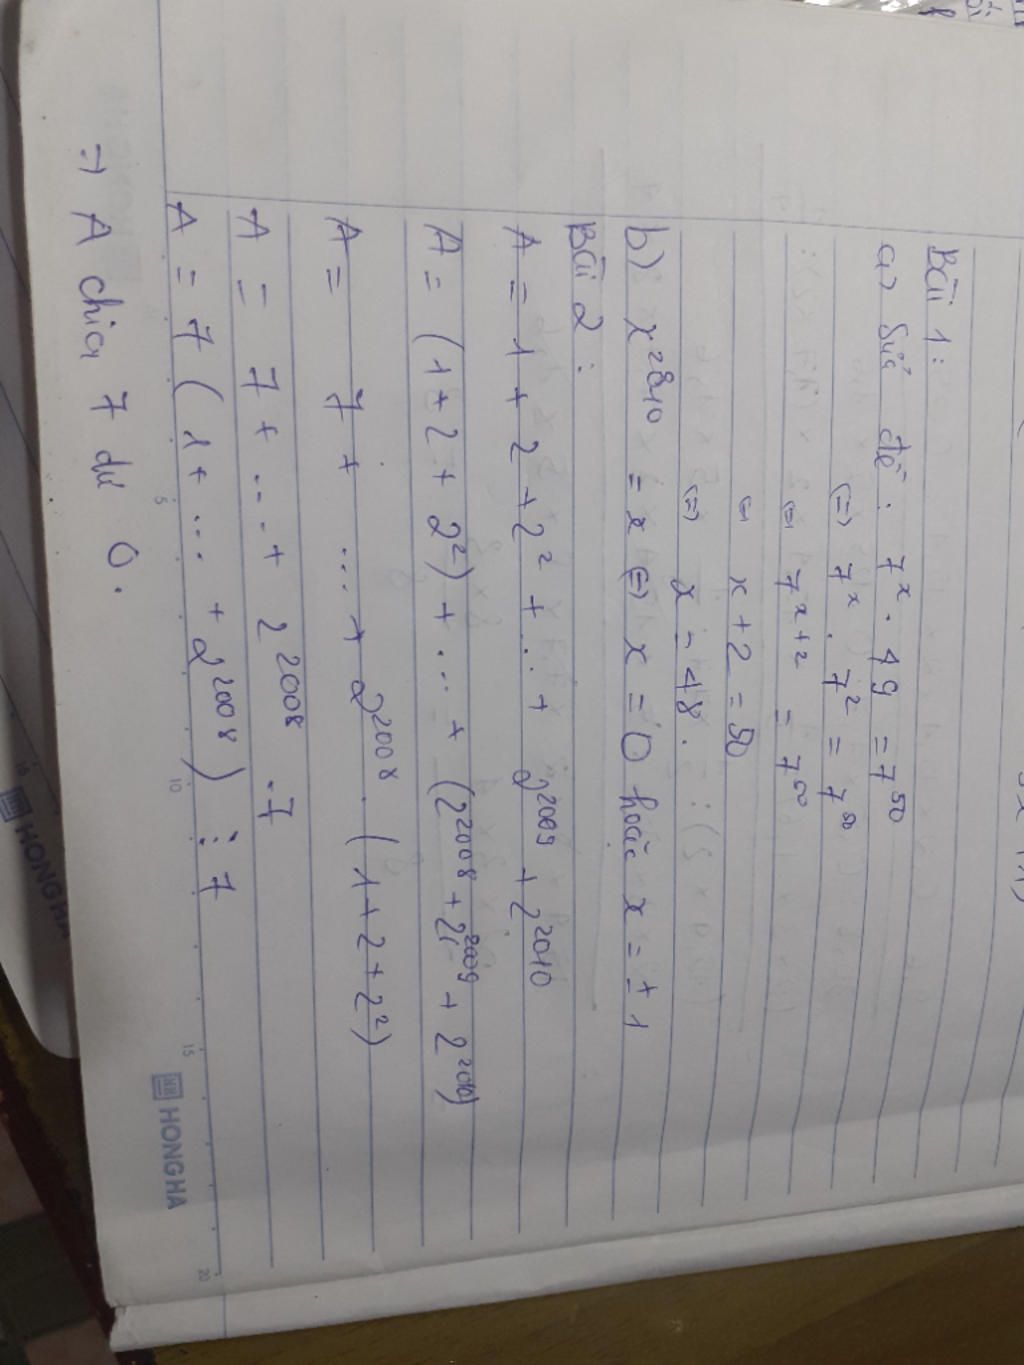 Bài 1:
a) Sửa đề: 7^x . 49 = 7^50
(=) 7^x . 7^2 = 7^50
(=) 7^x+2 = 7^50
(=) x + 2 = 50
(=) x = 48.
b) x^2010 = x (=) x = 0 hoặc x = ± 1
Bài 2:
A = 1 + 2 + 2^2 + ... + 2^2009 + 2^2010
A = (1 + 2 + 2^2) + ... + (2^2008 + 2^2009 + 2^2010)
A = 7 + ... + 2^2008 . (1 + 2 + 2^2)
A = 7 + ... + 2^2008 . 7
A = 7 ( 1 + ... + 2^2008 ) ⋮ 7
=> A chia 7 dư 0.
5
10
15
20
HONG HA
HONG HA